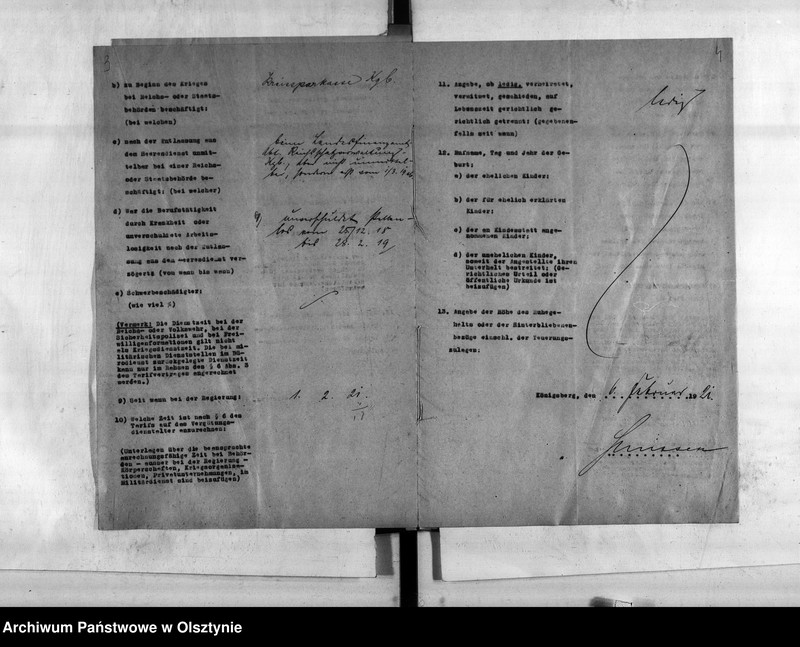 3
b) zu Beginn des Krieges
bei Reichs- oder Staats-
behörden beschäftigt;
(bei welchen)
Kgb.
c) nach der Entlassung aus
dem Heeresdienst unmit-
telbar bei einer Reichs-
oder Staatsbehörde be-
schäftigt; (bei welcher)
beim Landesfinanzamt
Abt. Reichsschatzverwaltung
Kgb., aber nicht unmittel-
bar, sondern erst vom 1/3.
d) War die Berufstätigkeit
durch Krankheit oder
unverschuldete Arbeits-
losigkeit nach der Entlas-
sung aus dem Heeresdienst ver-
zögert; (von wann bis wann)
unverschuldet stellen-
los vom 25/12. 18
bis 28. 2. 19
e) Schwerbeschädigter;
(wie viel %)
(Vermerk: Die Dienstzeit bei der
Reichs- oder Volkswehr, bei der
Sicherheitspolizei und bei Frei-
willigenformationen gilt nicht
als Kriegsdienstzeit. Die bei mi-
litärischen Dienststellen im Bü-
rodienst zurückgelegte Dienstzeit
kann nur im Rahmen des § 6 Abs. 2
des Tarifvertrages angerechnet
werden.)
9) Seit wann bei der Regierung;
1. 2. 21.
10) Welche Zeit ist nach § 6 des
Tarifs auf das Vergütungs-
dienstalter anzurechnen;
(Unterlagen über die beanspruchte
anrechnungsfähige Zeit bei Behör-
den - ausser bei der Regierung -
Körperschaften, Kriegsorganisa-
tionen, Privatunternehmungen, im
Militärdienst sind beizufügen)
4
11. Angabe, ob ledig, verheiratet,
verwitwet, geschieden, auf
Lebenszeit gerichtlich ge-
richtlich getrennt; (gegebenen-
falls seit wann)
ledig
12. Rufname, Tag und Jahr der Ge-
burt;
a) der ehelichen Kinder;
b) der für ehelich erklärten
Kinder;
c) der an Kindesstatt ange-
nommenen Kinder;
d) der unehelichen Kinder,
soweit der Angestellte ihren
Unterhalt bestreitet; (Ge-
richtliches Urteil oder
öffentliche Urkunde ist
beizufügen)
13. Angabe der Höhe des Ruhege-
halts oder der Hinterbliebenen-
bezüge einschl. der Teuerungs-
zulagen;
Königsberg, den 6. Februar 1921.
Archiwum Państwowe w Olsztynie